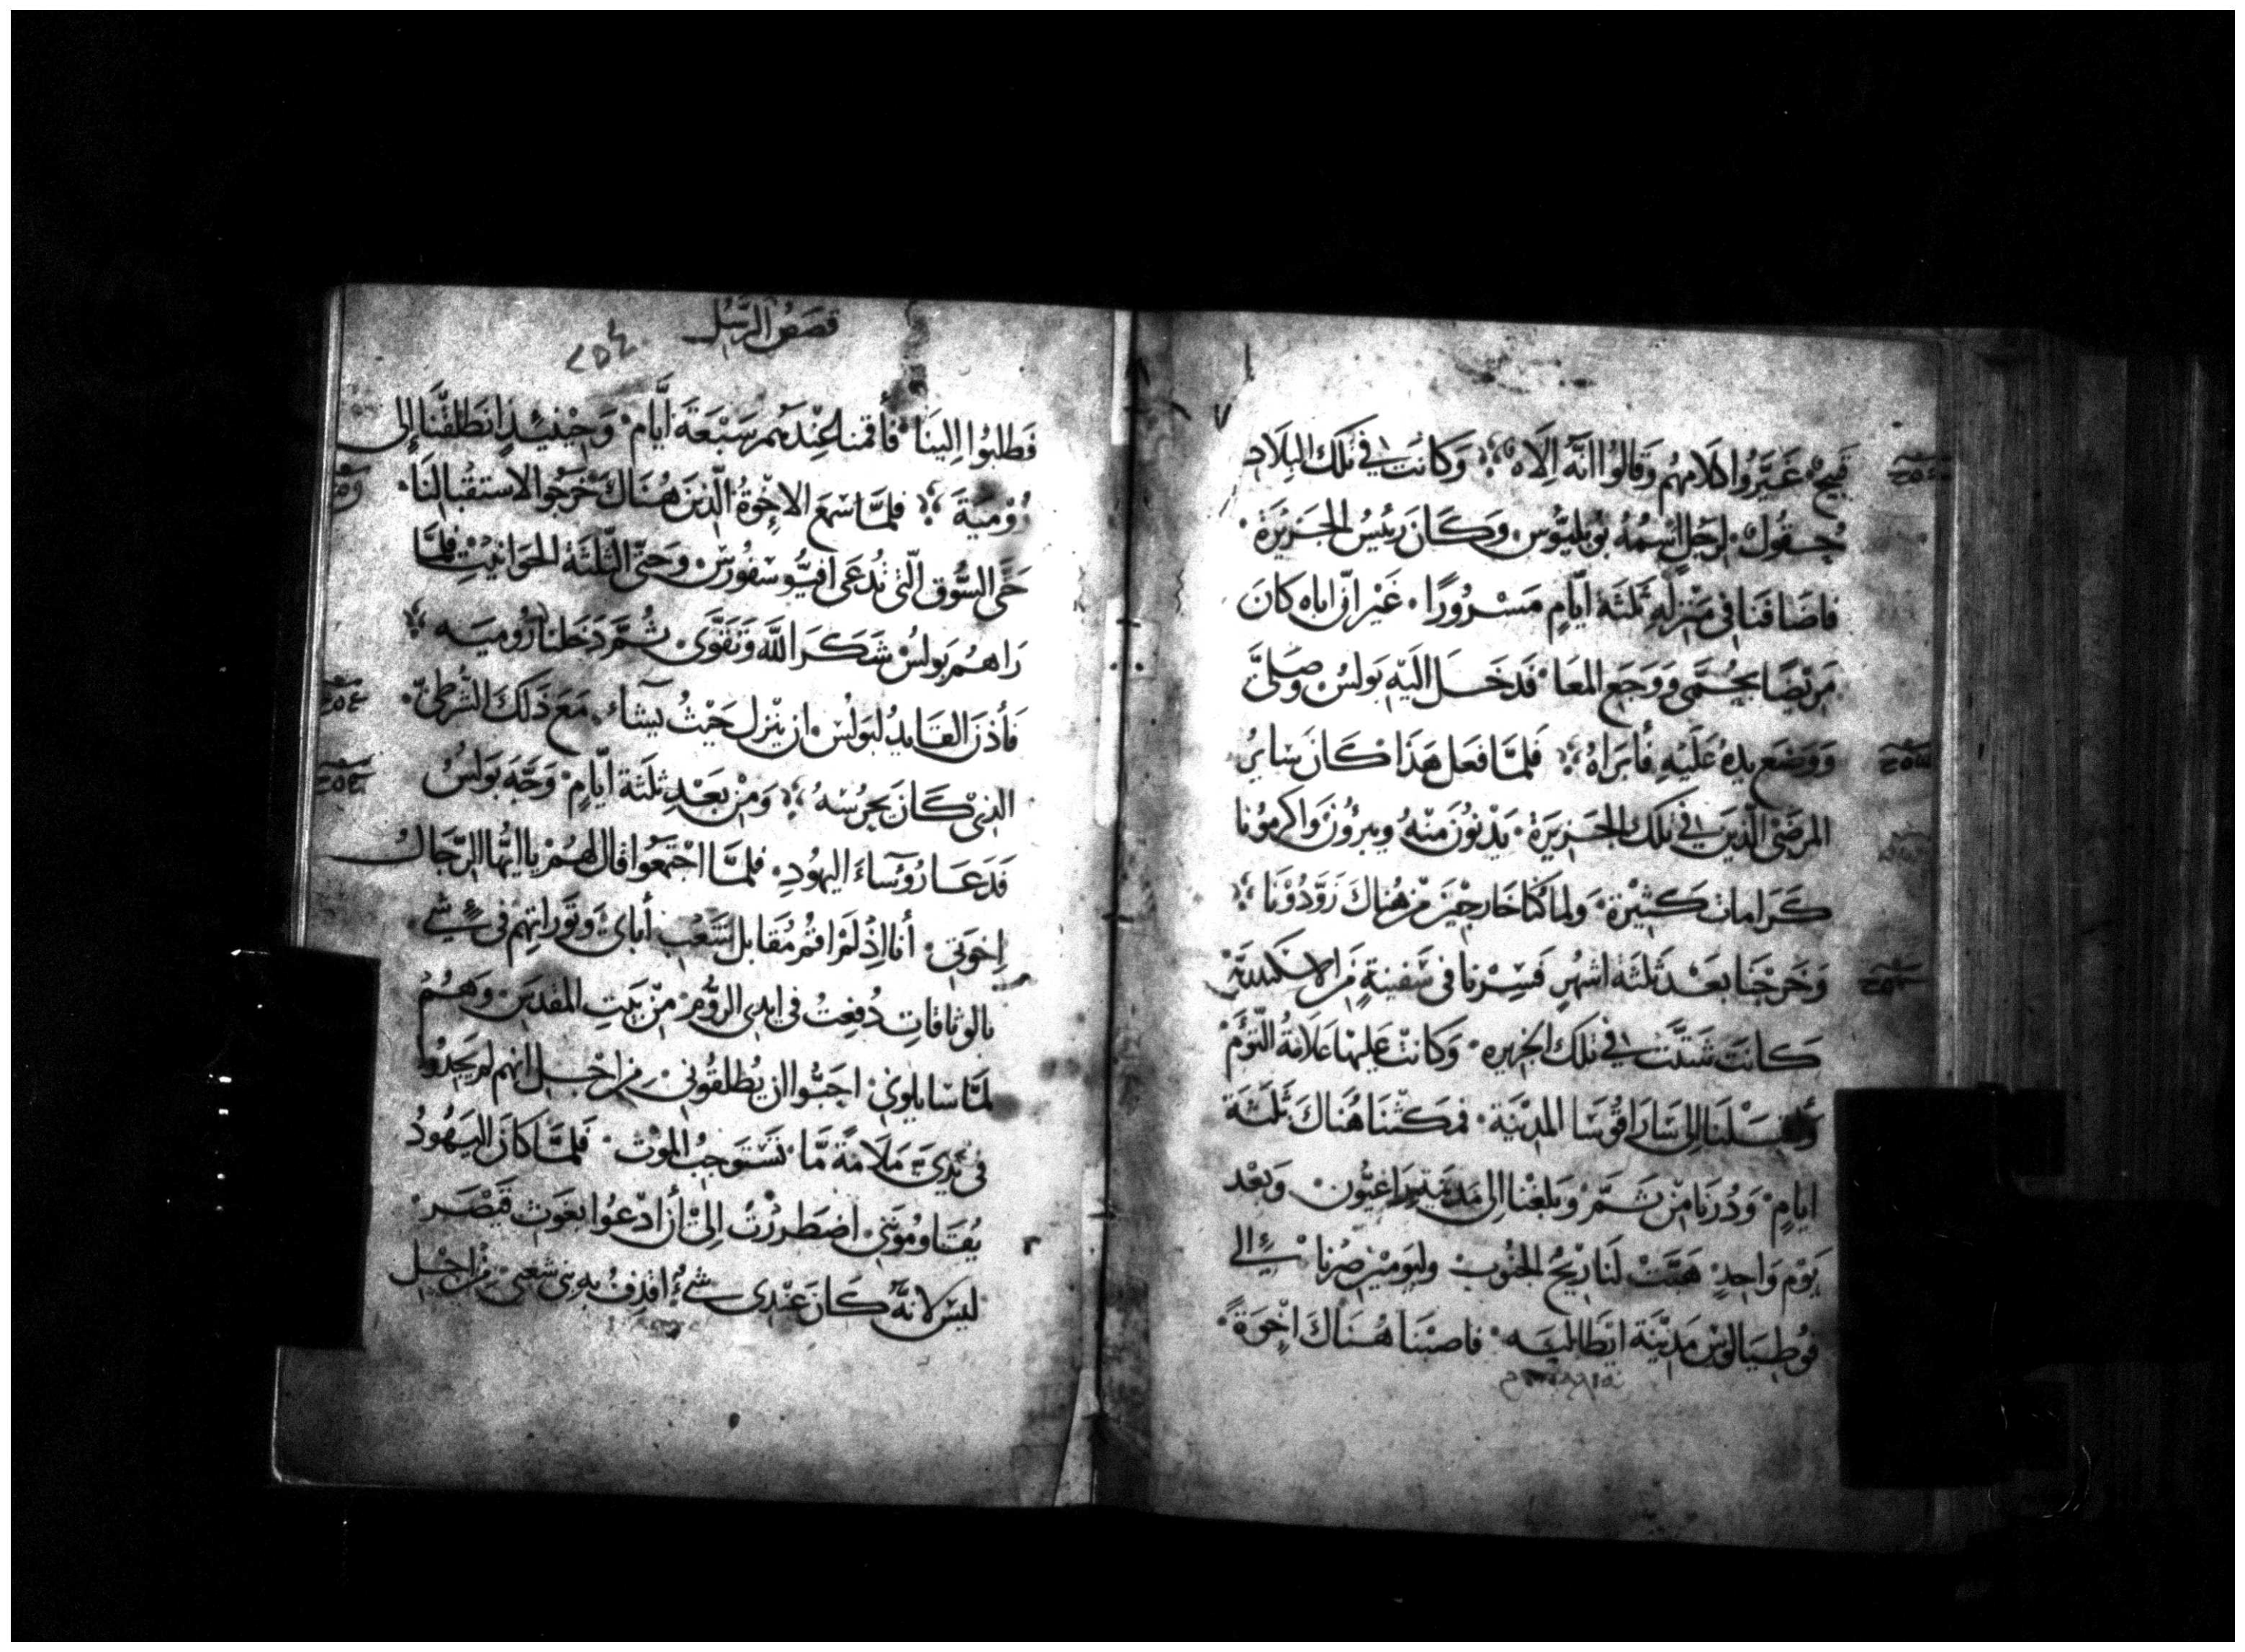 قَبِيحٌ غَيَّرُوا كَلَامَهُم وَقَالُوا انَّهُ اِلَاهٌ وَكَانَت فِي تِلكَ البِلَادِ
حُقُول لِرَجُلٍ اسْمُهُ بُوبلِيُوس وَكَانَ رَئيسُ الجَزِيرَة
فاضَافَنا فِي مَنْزِلِهِ ثَلثَة ايَّامٍ مَسْرُورًا غَيْرَ انّ اباه كانَ
مَريضًا بحُمَّى وَوَجَع المعَا فَدخَل اليْهِ بَولُس وَصَلَّى
وَوضَع يدهُ عَلَيْهِ فأبرَاهُ فَلمَّا فعَل هَذَا كَانَ سَايرُ
المرضَى الَّذِينَ فِي تِلكَ الجَزِيرَة يَدْنُونَ مِنْهُ وَيبرؤُن وَاكرمُونا
كَرَامات كَثِيْرَة وَلما كُنَّا خَارجِيْنَ مِنْ هُناكَ زَوَّدُوْنَا
وَخَرَجْنا بعَدْ ثَلثَة اشْهُرٍ فَسِرْنا في سَفينةٍ مِن الاسكندريَّة
كانَت شَتَّت فِي تِلكَ الجزيره وَكانَتْ عَليهَا عَلَامَةُ التَّؤَمْ
إلى سَارَاقُوسَا المَدِيْنَة فمكثْنا هُنَاكَ ثَلثَة
ايامٍ وَدُرْنَا مِنْ ثَمَّ وَبَلغْنَا إلى مَدينَة رَاغيُون وَبَعْد
يَوْمٍ وَاحِدٍ هَبَّتْ لَنَا رِيْحُ الجَنُوبِ وَليَومَيْن صِرْنا إلى
فُوطِيَالُوس مَدِيْنَة ايطَاليَه فاصبْنا هُنَاكَ اخْوَةً
قصَصُ الرسُل
٢٥٤
فَطَلبُوا اِلينَا فأقمنا عِنْدَهُم سَبْعَة أيَّام وَحِيْنَئِذٍ انطَلقْنَا إلى
رُوْمِيَةَ فلمَّا سَمعَ الاخْوَةُ الّذِينَ هُنَاكَ خَرَجُوا لاستقبالِنَا
حَتَّى السُّوق الّتي تُدعَى افيُّوسفُورُس وَحَتّى الثَّلثَة الحَوَانيْت فلمَّا
رَاهُم بَولسُ شَكَرَ اللّهَ وَتَقَوَّى ثُمَّ دَخَلنا رُوميَه
فَأذنَ القَايدُ لبَولُس ان يَنْزل حَيْثُ يَشاء مَعَ ذَلكَ الشُّرَطيّ
الذِي كَانَ يحرُسهُ وَمِنْ بَعْدِ ثلَثَة ايَّامٍ وَجَّهَ بَولسُ
فَدَعَا رُؤسَاءَ اليهُودِ فلمَّا اجْتَمعُوا قال لَهُمْ يا ايُّهَا الرِّجَالُ
اِخوَتِي أنا اِذْ لَمْ اقُم مُقَابل شَعْب أباى وَتَوْرَاتِهِم في شيٍ
بالوثاقاتِ دُفِعتُ في ايدي الرُّومِ مِنْ بَيتِ المقدِسِ وَهُمُ
لمَّا سَايلوني احَبُّوا ان يُطلقُوني مِن اجْل انهم لَم يَجدُوا
فِي يَدَيّ مَلَامَةً مَّا تَسْتَوجِبُ الموْتْ فَلمَّا كانَ اليَهُودُ
يُقَاومُونَنِي اضطَررْتُ إلىْ أن ادْعُوا بغَوث قَيْصَر
ليسَ لانهُ كَانَ عِنْدِي شيءٌ اقذِفُ بهِ بني شعبي مِنْ اجْلِ